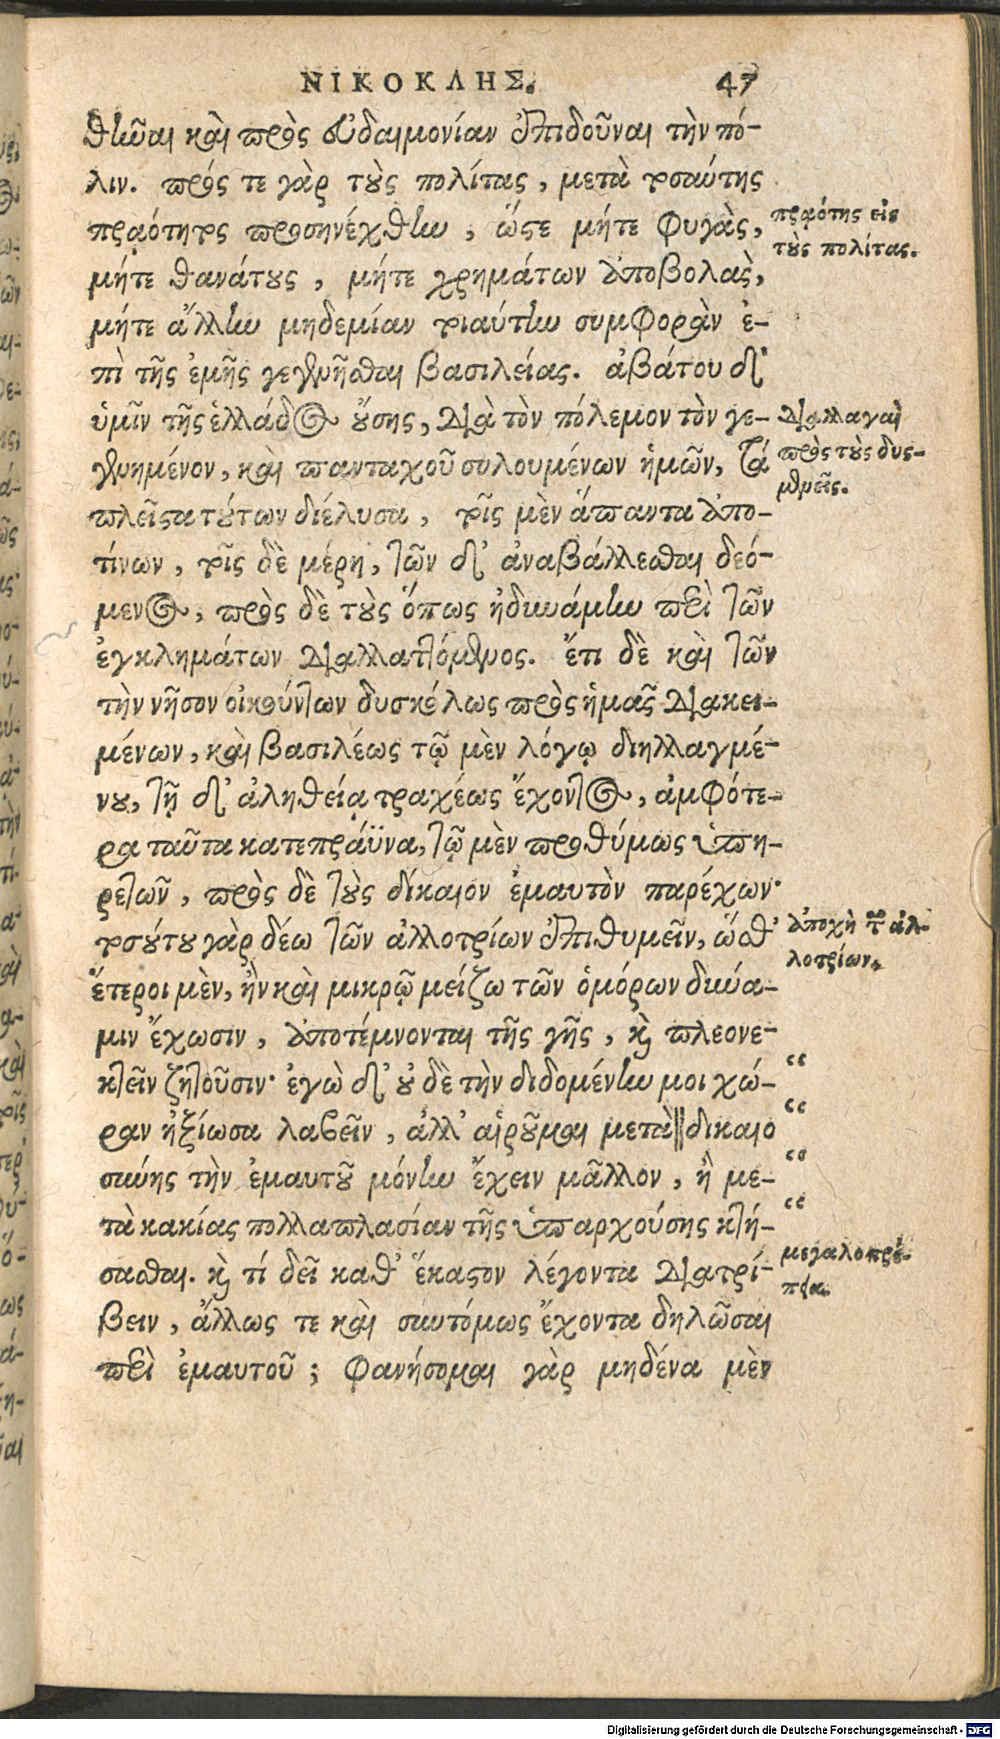 ΝΙΚΟΚΛΗΣ. 47
θῆναι καὶ πρὸς εὐδαιμονίαν ἐπιδοῦναι τὴν πό-
λιν. πρός τε γὰρ τοὺς πολίτας, μετὰ τοσαύτης
πρᾳότητος προσηνέχθην, ὥστε μήτε φυγὰς,
πρᾳότης εἰς
τοὺς πολίτας.
μήτε θανάτους, μήτε χρημάτων ἀποβολὰς,
μήτε ἄλλην μηδεμίαν τοιαύτην συμφορὰν ἐ-
πὶ τῆς ἐμῆς γεγενῆσθαι βασιλείας. ἀβάτου δ'
ὑμῖν τῆς ἑλλάδος οὔσης, διὰ τὸν πόλεμον τὸν γε-
γενημένον, καὶ πανταχοῦ συλουμένων ἡμῶν, τά
διαλλαγαὶ
πρὸς τοὺς δυς-
μενεῖς.
πλεῖστα τούτων διέλυσα, τοῖς μὲν ἅπαντα ἀπο-
τίνων, τοῖς δὲ μέρη, τῶν δ' ἀναβάλλεσθαι δεό-
μενος, πρὸς δὲ τοὺς ὅπως ἠδυνάμην περὶ τῶν
ἐγκλημάτων διαλλαττόμενος. ἔτι δὲ καὶ τῶν
τὴν νῆσον οἰκούντων δυσκόλως πρὸς ἡμᾶς διακει-
μένων, καὶ βασιλέως τῷ μὲν λόγῳ διηλλαγμέ-
νου, τῇ δ' ἀληθείᾳ τραχέως ἔχοντος, ἀμφότε-
ρα ταῦτα κατεπράϋνα, τῷ μὲν προθύμως ὑπη-
ρετῶν, πρὸς δὲ τοὺς δίκαιον ἐμαυτὸν παρέχων·
τοσούτου γὰρ δέω τῶν ἀλλοτρίων ἐπιθυμεῖν, ὥσθ'
ἀποχὴ τῶν ἀλ-
λοτρίων.
ἕτεροι μὲν, ἢν καὶ μικρῷ μείζω τῶν ὁμόρων δύνα-
μιν ἔχωσιν, ἀποτέμνονται τῆς γῆς, καὶ πλεονε-
κτεῖν ζητοῦσιν· ἐγὼ δ' οὐδὲ τὴν διδομένην μοι χώ- “
ραν ἠξίωσα λαβεῖν, ἀλλ' αἱροῦμαι μετὰ ‖ δικαιο “
σύνης τὴν ἐμαυτοῦ μόνην ἔχειν μᾶλλον, ἢ με- “
τὰ κακίας πολλαπλασίαν τῆς ὑπαρχούσης κτή- “
σασθαι. καὶ τί δεῖ καθ' ἕκαστον λέγοντα διατρί-
μεγαλοπρέ-
πεια.
βειν, ἄλλως τε καὶ συντόμως ἔχοντα δηλῶσαι
περὶ ἐμαυτοῦ; φανήσομαι γὰρ μηδένα μὲν
Digitalisierung gefördert durch die Deutsche Forschungsgemeinschaft - DFG